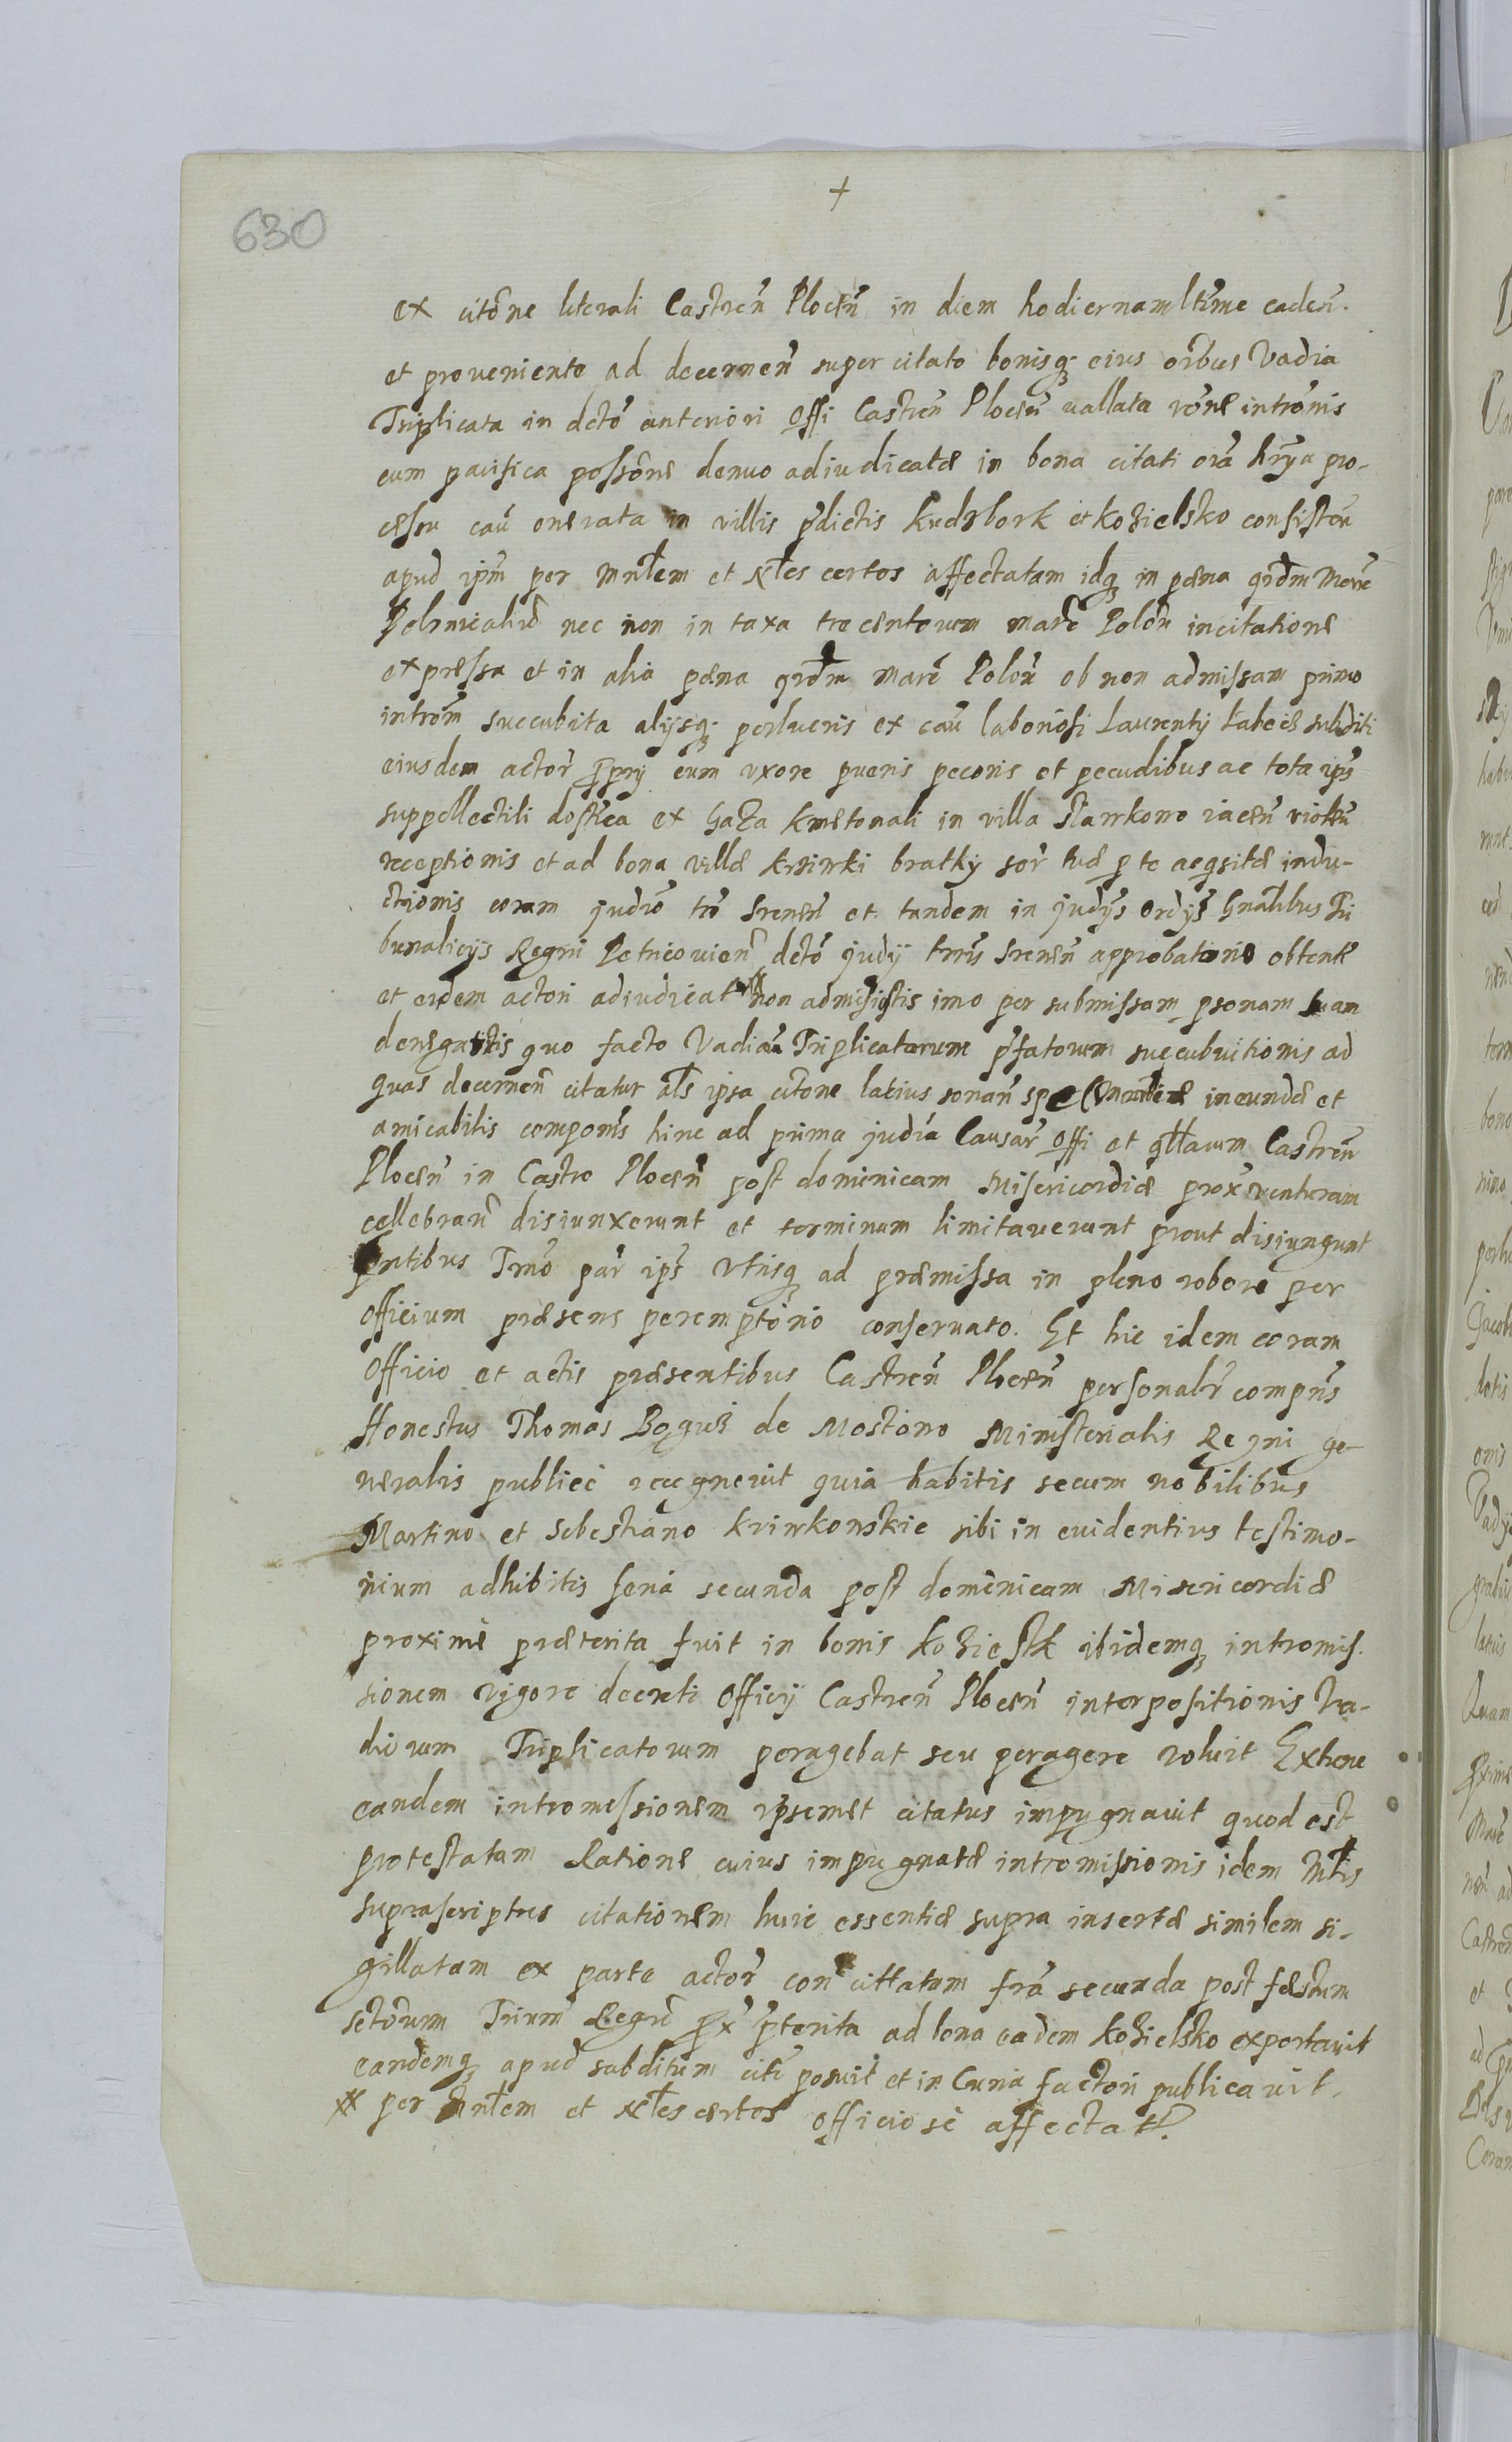 +
630
ex citõne literali Castreñ Ploceñ in diem hodiernam ltime cadeñ.
et proueniente ad decerneñ super citato bonisq; eius oĩbus Vadia
Triplicata in dcto anteriori Offi Castreñ Ploceñ vallata rõne intrõnis
cum pacifica possõne denuo adiudicatæ in bona citati oĩa hrỹa pro-
cessu cau onerata in villis p̃dictis Kudzbork et Kozielsko consisteñ
apud ipm̃ per Mnłem et Nłes certos affectatam idq; in pæna
nec non in taxa trecentorum marc̃ Poloñ in citatione
expressa et in alia pæna marc̃ Poloñ ob non admissam primo
introm̃ succubita alijsq; perlueris ex caũ laboriosi Laurentij subditi
eiusdem actor̃ proprij cum vxore pueris pecoris et pecudibus ac tota ips̃
suppellectili dostica ex haza kmetonali in villa iaceñ
receptionis et ad bona villæ bratky sor̃ tuæ p te acqsitæ indu-
ctionis coram judio trõ Sreneñ et tandem in judys ordys Gnałibus Tri
bunalicijs Regni Petricouieñ dcto judij trr̃is Sreneñ approbationis obtentæ
et eidem actori adiudicat non admisistis imo per submissam psonam tuam
denegastis quo facto Vadiorũ Triplicatorum p̃fatorum succubuitionis ad
quas decerneñ citatur ałs ipsa citõne latius sonañ spe ineundæ et
amicabilis componis hinc ad prima judia Causar̃ Offi et Castreñ
Ploceñ in Castro Ploceñ post dominicam Misericordiæ prox̃ venturam
cellebrañ disiunxerunt et terminum limitauerunt prout disiungunt
pntibus Tmõ par̃ ips̃ vtrisq; ad præmissa in pleno robore per
officium præsens peremptõrio conseruato. Et hic idem coram
Officio et actis præsentibus Castreñ Ploceñ personalr̃ compñs
Honestus Thomas Boguś de Mostowo Ministerialis Regni ge-
neralis publice recognouit quia habitis secum nobilibus
Martino et Sebestiano Krzinkowskie sibi in euidentius testimo-
nium adhibitis feria secunda post dominicam Misericordiæ
proxime præterita fuit in bonis ibidemq; intromis.
sionem vigore decreti Officij Castreñ Ploceñ interpositionis Va-
diorum Triplicatorum peragebat seu peragere voluit Exhinc
eandem intromissionem ipsemet citatus impugnauit quod est
protestatum Ratione cuius impugnatæ intromissionis idem Młis
suprascriptus citationem huic essentiæ supra insertæ similem si-
gillatam ex parte actor̃ con cittatum fr̃a secunda post festum
sctorum Trium Regũ px̃ p̃terita ad bona eadem Kozielsko exportauit
eandemq; apud subditum citi posuit et in Curia factori publicauit.
per Mnłem et Nłes certos officiose affectat.